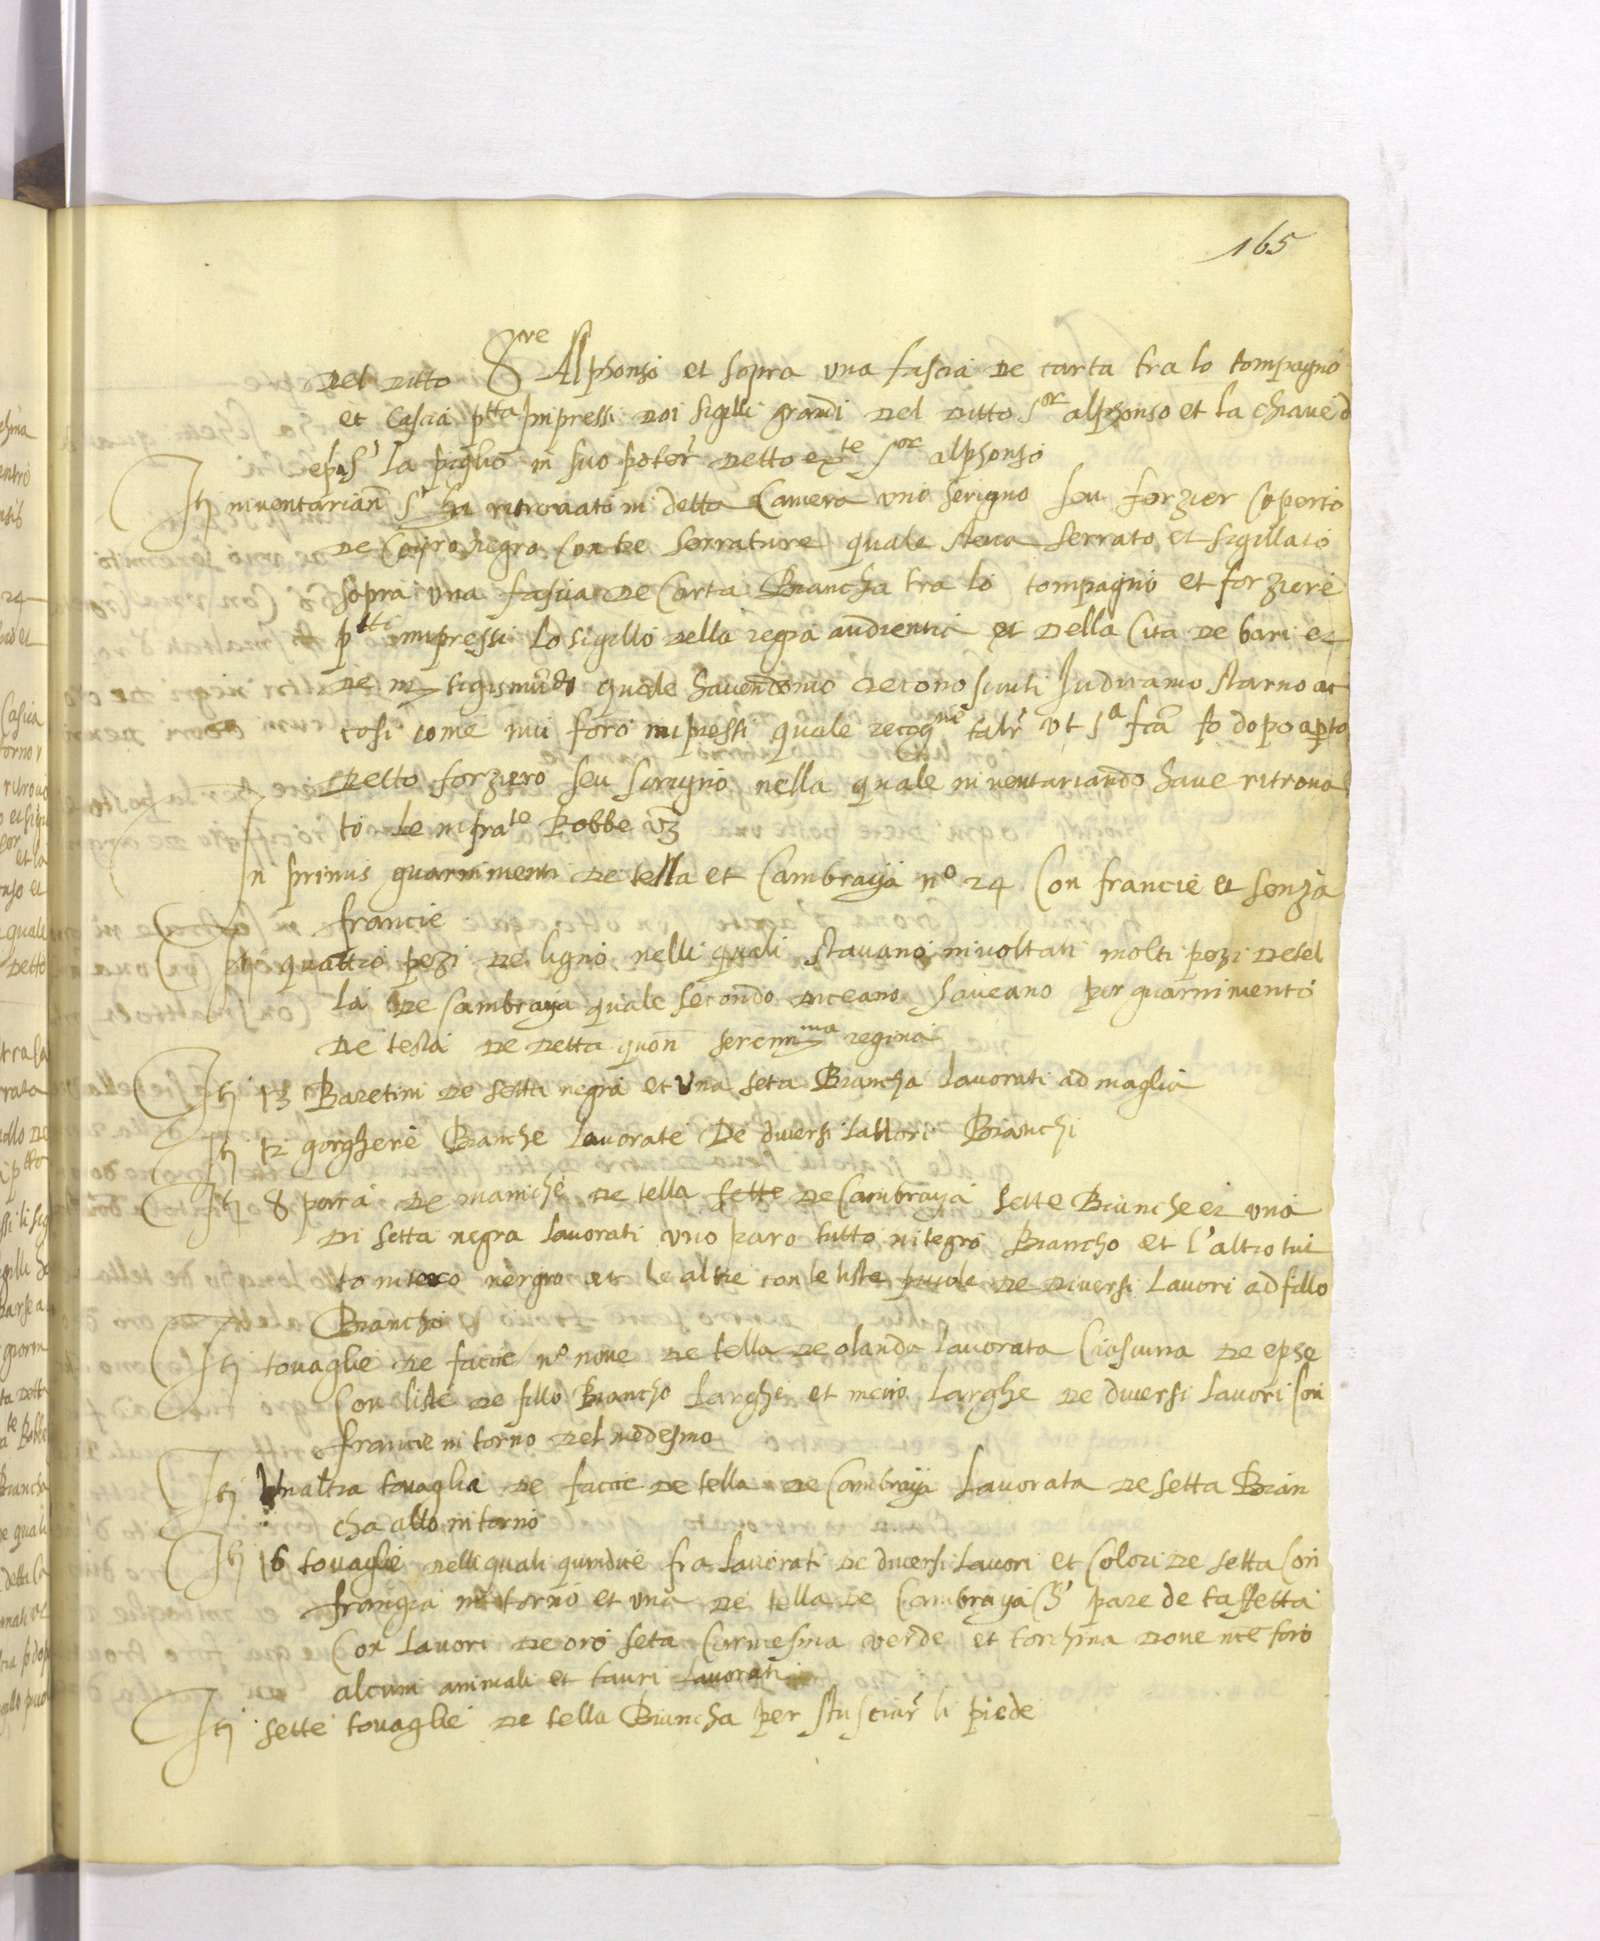 165
del ditto S.re Alphonso et sopra una fascia de carta tra lo compagno
et Cascia p.tta impressi doi sigilli grandi del ditto s.or alphonso et la chiave d
la piglio in suo poter detto s.or alphonso
It inventarian ritrovato in detta Camera uno scrigno seu forzier coperto
de Coyro negro con tre serrature quale steva serrato et sigillato
sopra una fascia de Carta Biancha tra lo compagno et forziere
p.tti impressi lo sigillo della regia audientia et della Cita de bari et
de m sigismundo quale havendomo reconosciuti Judicamo starno ac
cosi come nui foro impressi quale recog.ne talr ut s.a fca fo dopo apto
detto forziero seu scrigno nella quale inventariando have ritrova
to le infra.te Robbe vz
In primis guarnimenti de tella et Cambraya n.o 24 Con francie et senza
francie
It quattro pezi de ligno nelli quali stavano involtati molti pezi de tel
la de Cambraya quale secondo diceano haveano per guarnimento
de testa de detta quon seren.ma regina
It 13 Baretini de setta negra et una seta Biancha lavorati ad maglia
It 12 gorghere Bianche lavorate De diversi lavori Bianchi
It 8 para de maniche de tella sette de Cambraya sette Bianche et una
di setta negra lavorati uno paro tutto integro Biancho et l'altro tut
to intero negro et le altre con le liste piccole de diversi lavori ad fillo
Biancho
It tovaglie de faccie n.o nove de tella de olanda lavorata Ciascuna de epse
Con liste de fillo Biancho larghe et meno larghe de diversi lavori Con
francie in torno del medesmo
It Unaltra tovaglia de faccie de tella de Cambraya lavorata de setta Bian
cha allo intorno
It 16 tovaglie nelli quali quindice fra lavorati de diversi lavori et Colori de setta Con
frangia in torno et una de tella de Cambraya pare de taffetta
Con lavori de oro seta Carmesina verde et torchina dove nce foro
alcuni animali et tauri lavorati
It sette tovaglie de tella Biancha per stusciar li piede